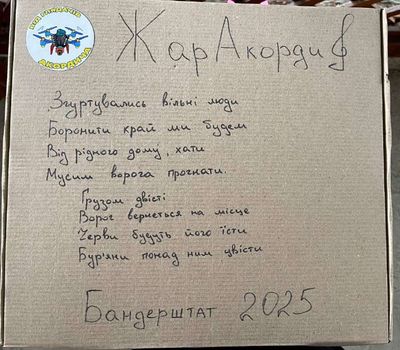 ВІД ГИНДАСІВ
АКОРДИЧА
ЖарАкорди
Згуртувались вільні люди
Боронити край ми будем
Від рідного дому, хати
Мусим ворога прогнати.
Грузом двісті
Ворог вернеться на місце
Черви будуть його їсти
Бур'яни понад ним цвісти
Бандерштат 2025